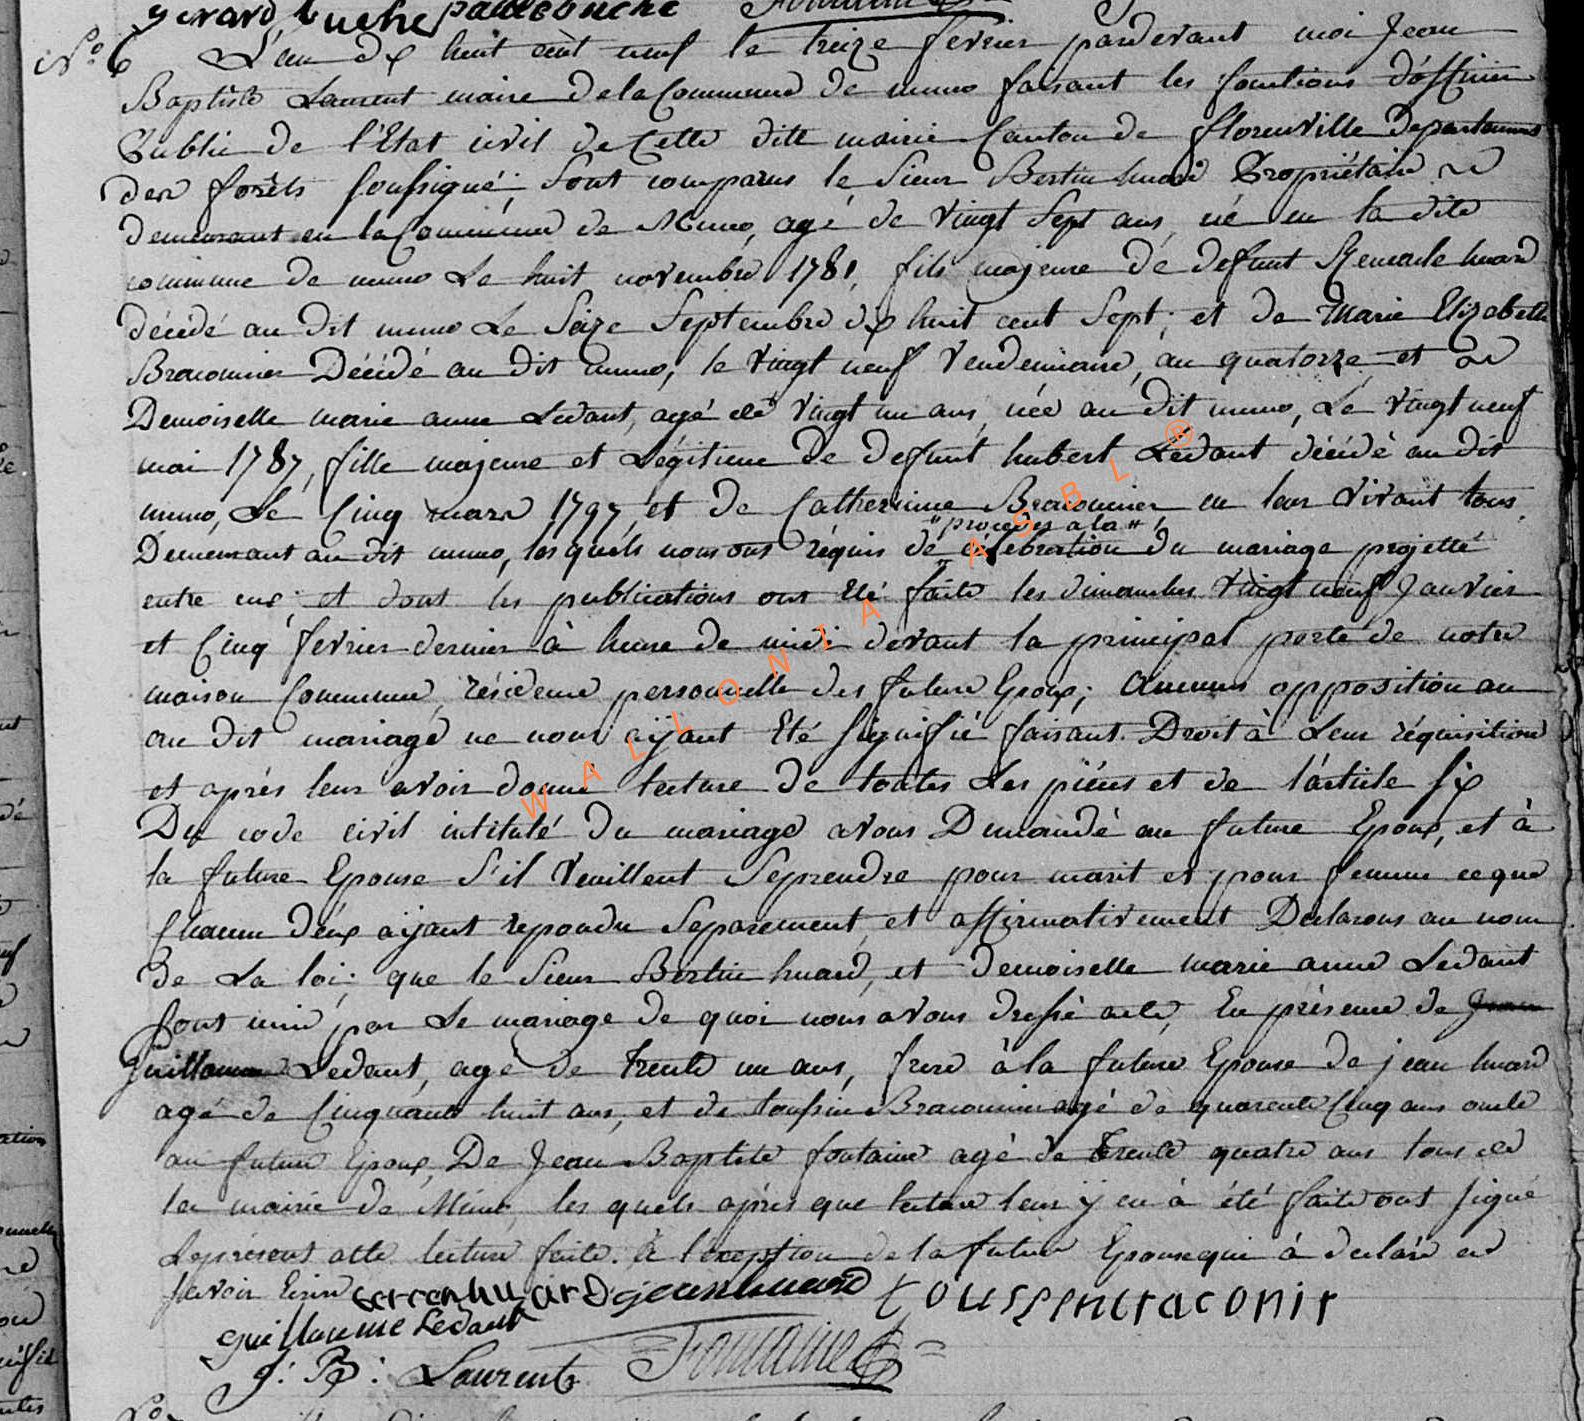 gerard buche paul couché Fontaine
N° 6 L'an dix huit cent neuf le treize fevrier pardevant moi Jean
Baptiste Laurent maire de la Commune de muno faisant les fonctions d'officier
Public de l'Etat civil de Cette dite mairie Canton de florenville departement
des forêts soussigné; sont comparus le Sieur Bertin huard Propriétaire
demeurant en la Commune de Muno, agé de vingt sept ans, né en la dite
commune de muno Le huit novembre 1781, fils majeure dé defunt Remacle huard
décédé au dit muno Le Seize Septembre dix huit cent sept; et de Marie Elizabeth
Braconnier Décédé au dit muno, le vingt neuf Vendemiaire, an quatorze et
Demoiselle marie anne Ledant, agé de vingt un ans, née au dit muno, Le vingt neuf
mai 1787, fille majeure et Légitime De defunt hubert Ledant décédé au dit
muno, Le Cinq mars 1797, et de Catherinne Braconnier en leur vivant tous
"proceder a la"
Demeurant au dit muno, les quels nous ont réquis de célébration du mariage projetté
entre eux; et dont les publications ont été faite les dimanches vingt neuf Janvier
et Cinq fevrier dernier à heure de midi devant la principal porte de notre
maison Commune, résidence personnelle des future Epoux; Aucune opposition au
au dit mariage ne nous aÿant Eté signifié faisant Droit à Leur réquisition
et après leur avoir donné lecture de toutes Les pièces et de l'article six
Du code civil intitulé Du mariage avons Demandé au future Epoux, et à
la future Epouse S'il veuillent Seprendre pour marit et pour femme ce que
Chacun d'éux aÿant repondu Séparement, et affirmativement Déclarons au nom
de La loi; que le Sieur Bertin huard, et demoiselle marie anne Ledant
sont unie par Le mariage de quoi nous avons dressé acte, En présence de Jean
Guillaume Ledant, age de trente un ans, frere à la future Epouse de jean huard
agé de Cinquante huit ans, et de toussine Braconnier agé de quarente Cinq ans oncle
au future Epoux, De Jean Baptiste fontaine agé de trente quatre ans tous de
la mairie de Muno, les quels après que lecture leur ÿ en à été faite ont signé
Leprésent acte lecture faite. à l'exeption de la future Epouse qui à declaré ne
savoir Ecrire bertenhuard jeanhuard toussentraconir
guillaume Ledant
J: B: Laurent Fontaine
WALLONIA ASBL ®